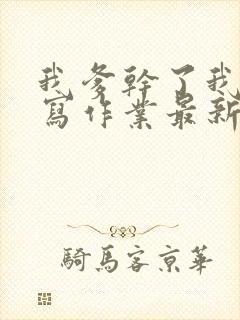 我爹幹了我
寫作業最新
騎馬客京華